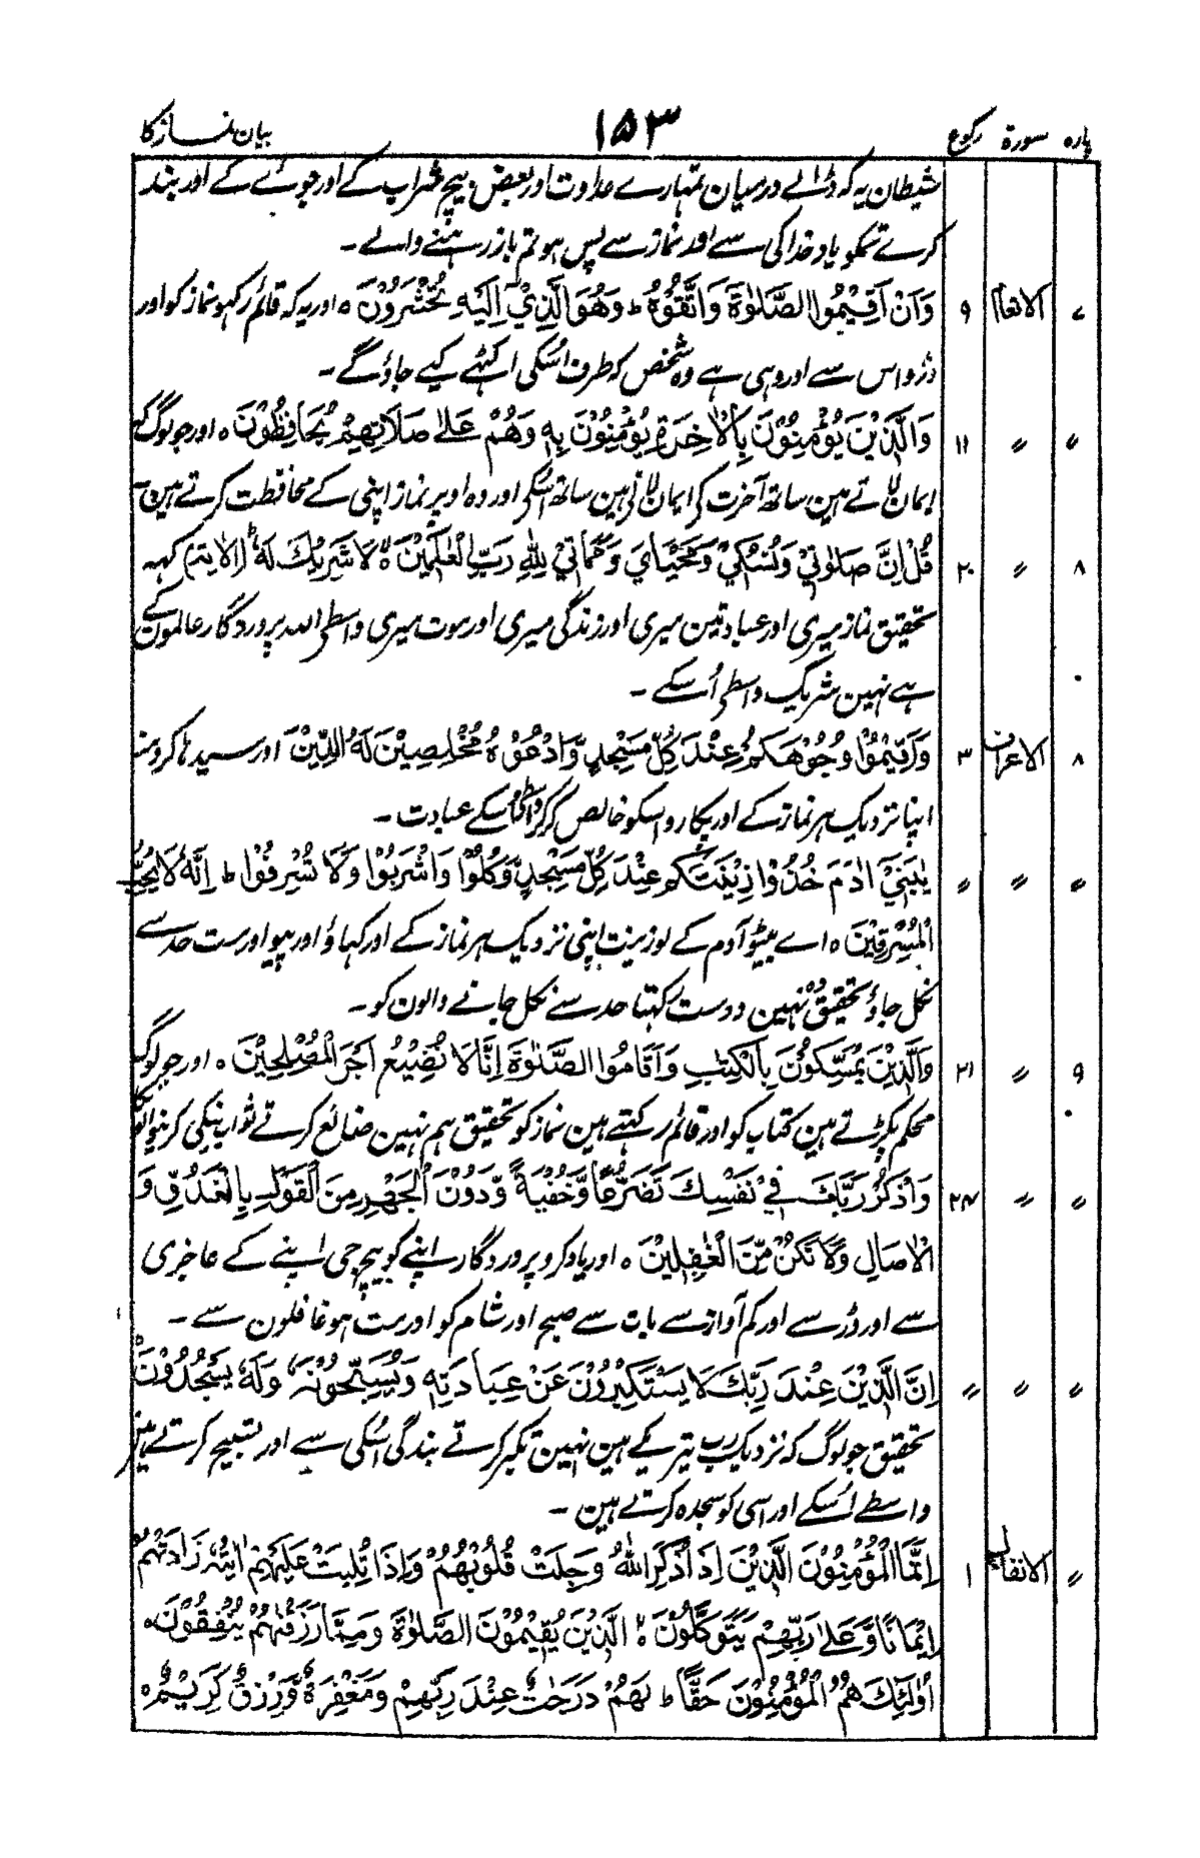 پارہ سورۃ رکوع ۱۵۳ بیان نماز کا
شیطان یہ کہ ڈالے درمیان تمہارے عداوت اور بغض بیچ شراب کے اور جوئے کے اور بند
کرے تمکو یاد خدا کی سے اور نماز سے پس ہو تم باز رہنے والے ۔
۷ الانعام ۹ وَاَنْ اَقِیْمُوا الصَّلٰوةَ وَاتَّقُوْهُ ط وَهُوَ الَّذِیْ اِلَیْهِ تُحْشَرُوْنَ ہ اور یہ کہ قائم رکہو نماز کو اور
ڈرو اس سے اور وہی ہے وہ شخص کہ طرف اسکی اکہٹے کیے جاؤ گے ۔
〃 〃 ۱۱ وَالَّذِیْنَ یُؤْمِنُوْنَ بِالْاٰخِرَةِ یُؤْمِنُوْنَ بِهٖ وَهُمْ عَلٰی صَلَاتِهِمْ یُحَافِظُوْنَ ہ اور جو لوگ کہ
ایمان لاتے ہین ساتھ آخرت کی ایمان لاتی ہین ساتھ اسکی اور وہ اوپر نماز اپنی کے محافظت کرتے ہین ۔
۸ 〃 ۲۰ قُلْ اِنَّ صَلٰوتِیْ وَنُسُكِیْ وَمَحْیَایَ وَمَمَاتِیْ لِلّٰهِ رَبِّ الْعٰلَمِیْنَ ہ لَا شَرِیْكَ لَهٗ (الایۃ) کہہ
تحقیق نماز میری اور عبادتین میری اور زندگی میری اور موت میری واسطی اللہ پروردگار عالمون کے
ہے نہین شریک واسطی اُسکے ۔
۸ الاعراف ۳ وَاَقِیْمُوْا وُجُوْهَكُمْ عِنْدَ كُلِّ مَسْجِدٍ وَّادْعُوْهُ مُخْلِصِیْنَ لَهُ الدِّیْنَ اور سیدہا کرو منہ
اپنا نزدیک ہر نماز کے اور پکارو اسکو خالص کر کر واسطی اسکے عبادت ۔
〃 〃 〃 یٰبَنِیْ اٰدَمَ خُذُوْا زِیْنَتَكُمْ عِنْدَ كُلِّ مَسْجِدٍ وَّكُلُوْا وَاشْرَبُوْا وَلَا تُسْرِفُوْا ط اِنَّهٗ لَا یُحِبُّ
الْمُسْرِفِیْنَ ہ اے بیٹو آدم کے لو زینت اپنی نزدیک ہر نماز کے اور کہاؤ اور پیو اور مت حد سے
نکل جاؤ تحقیق نہین دوست رکہتا حد سے نکل جانے والون کو ۔
۹ 〃 ۲۱ وَالَّذِیْنَ یُمَسِّكُوْنَ بِالْكِتٰبِ وَاَقَامُوا الصَّلٰوةَ اِنَّا لَا نُضِیْعُ اَجْرَ الْمُصْلِحِیْنَ ہ اور جو لوگ
محکم پکڑتے ہین کتاب کو اور قائم رکہتے ہین نماز کو تحقیق ہم نہین ضائع کرتے ثواب نیکی کرنیوالونکا
〃 〃 ۲۴ وَاذْكُرْ رَبَّكَ فِیْ نَفْسِكَ تَضَرُّعًا وَّخُفْیَةً وَّدُوْنَ الْجَهْرِ مِنَ الْقَوْلِ بِالْغُدُوِّ وَ
الْاٰصَالِ وَلَا تَكُنْ مِّنَ الْغٰفِلِیْنَ ہ اور یاد کرو پروردگار اپنے کو بیچ جی اپنے کے عاجزی
سے اور ڈر سے اور کم آواز سے بات سے صبح اور شام کو اور مت ہو غافلون سے ۔
〃 〃 〃 اِنَّ الَّذِیْنَ عِنْدَ رَبِّكَ لَا یَسْتَكْبِرُوْنَ عَنْ عِبَادَتِهٖ وَیُسَبِّحُوْنَهٗ وَلَهٗ یَسْجُدُوْنَ
تحقیق جو لوگ کہ نزدیک رب تیر کے ہین نہین تکبر کرتے بندگی اسکی سے اور تسبیح کرتے ہین
واسطے اسکے اور اسی کو سجدہ کرتے ہین ۔
〃 الانفال ۱ اِنَّمَا الْمُؤْمِنُوْنَ الَّذِیْنَ اِذَا ذُكِرَ اللّٰهُ وَجِلَتْ قُلُوْبُهُمْ وَاِذَا تُلِیَتْ عَلَیْهِمْ اٰیٰتُهٗ زَادَتْهُمْ
اِیْمَانًا وَّعَلٰی رَبِّهِمْ یَتَوَكَّلُوْنَ ہ الَّذِیْنَ یُقِیْمُوْنَ الصَّلٰوةَ وَمِمَّا رَزَقْنٰهُمْ یُنْفِقُوْنَ ہ
اُولٰٓئِكَ هُمُ الْمُؤْمِنُوْنَ حَقًّا ط لَهُمْ دَرَجٰتٌ عِنْدَ رَبِّهِمْ وَمَغْفِرَةٌ وَّرِزْقٌ كَرِیْمٌ ہ